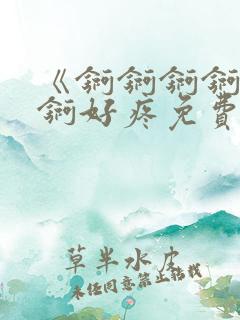 《锕锕锕锕
锕好疼免費
草半水皮
未经同意禁止转载